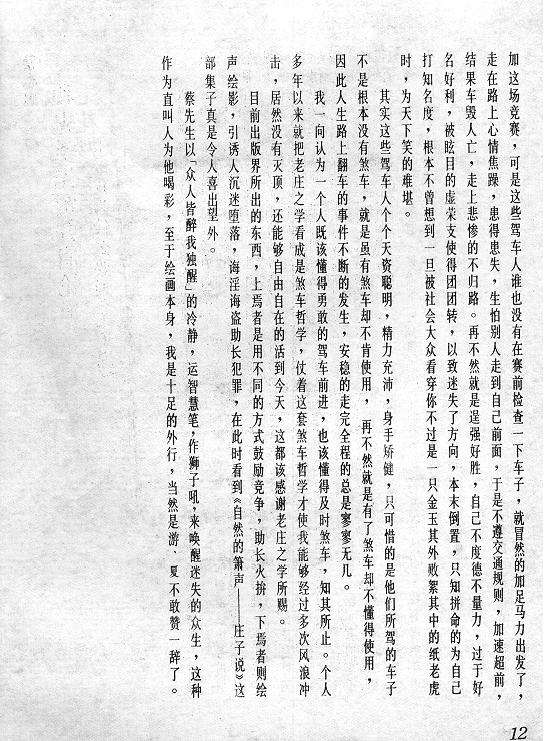 加这场竞赛，可是这些驾车人谁也没有在赛前检查一下车子，就冒然的加足马力出发了，
走在路上心情焦躁，患得患失，生怕别人走到自己前面，于是不遵交通规则，加速超前，
结果车毁人亡，走上悲惨的不归路。再不然就是逞强好胜，自己不度德不量力，过于好
名好利，被眩目的虚荣支使得团团转，以致迷失了方向，本末倒置，只知拼命的为自己
打知名度，根本不曾想到一旦被社会大众看穿你不过是一只金玉其外败絮其中的纸老虎
时，为天下笑的难堪。
其实这些驾车人个个天资聪明，精力充沛，身手矫健，只可惜的是他们所驾的车子
不是根本没有煞车，就是虽有煞车却不肯使用，再不然就是有了煞车却不懂得使用，
因此人生路上翻车的事件不断的发生，安稳的走完全程的总是寥寥无几。
我一向认为一个人既该懂得勇敢的驾车前进，也该懂得及时煞车，知其所止。个人
多年以来就把老庄之学看成是煞车哲学，仗着这套煞车哲学才使我能够经过多次风浪冲
击，居然没有灭顶，还能够自由自在的活到今天，这都该感谢老庄之学所赐。
目前出版界所出的东西，上焉者是用不同的方式鼓励竞争，助长火拚，下焉者则绘
声绘影，引诱人沉迷堕落，诲淫诲盗助长犯罪，在此时看到《自然的箫声——庄子说》这
部集子真是令人喜出望外。
蔡先生以「众人皆醉我独醒」的冷静，运智慧笔，作狮子吼，来唤醒迷失的众生，这种
作为直叫人为他喝彩，至于绘画本身，我是十足的外行，当然是游、夏不敢赞一辞了。
12